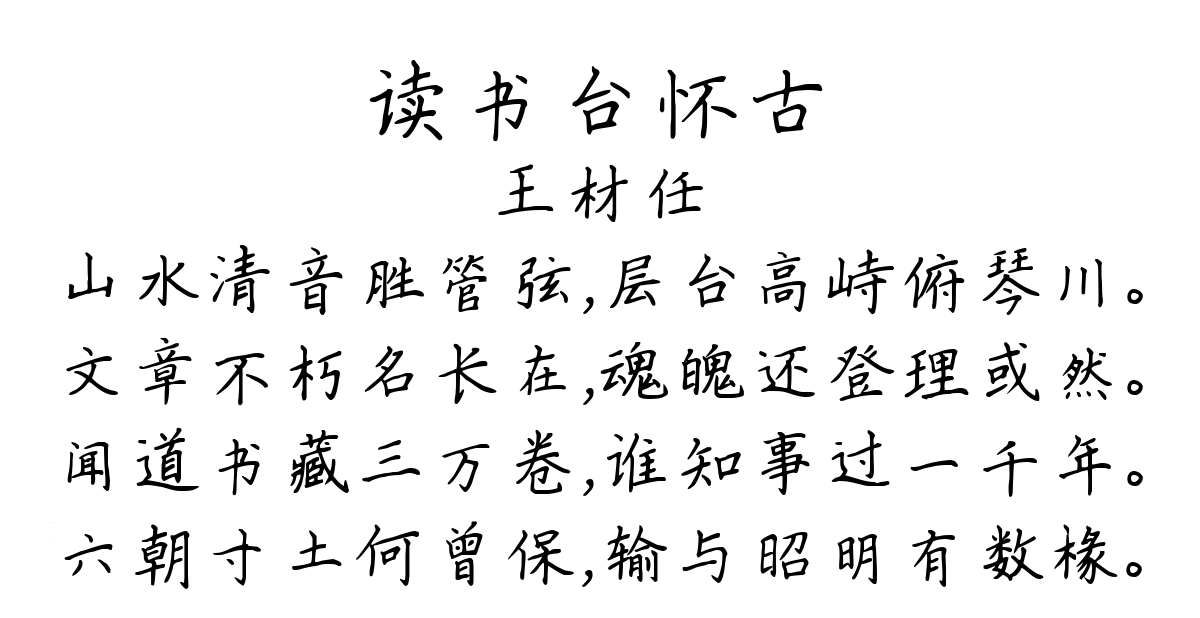 读书台怀古
王材任
山水清音胜管弦,层台高峙俯琴川。
文章不朽名长在,魂魄还登理或然。
闻道书藏三万卷,谁知事过一千年。
六朝寸土何曾保,输与昭明有数椽。